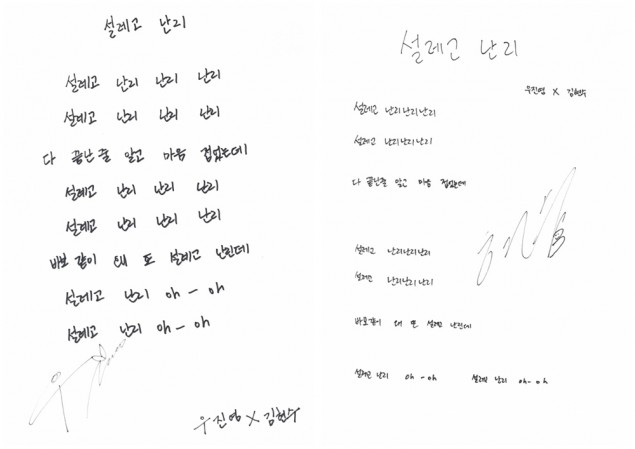 설레고 난리
설레고 난리 난리 난리
설레고 난리 난리 난리
다 끝난 줄 알고 마음 접었는데
설레고 난리 난리 난리
설레고 난리 난리 난리
바보 같이 왜 또 설레고 난린데
설레고 난리 oh - oh
설레고 난리 oh - oh
우진영 X 김현수
설레고 난리
우진영 X 김현수
설레고 난리난리난리
설레고 난리난리난리
다 끝난줄 알고 마음 접었는데
설레고 난리난리난리
설레고 난리난리난리
바보같이 왜 또 설레고 난린데
설레고 난리 oh - oh 설레고 난리 oh - oh